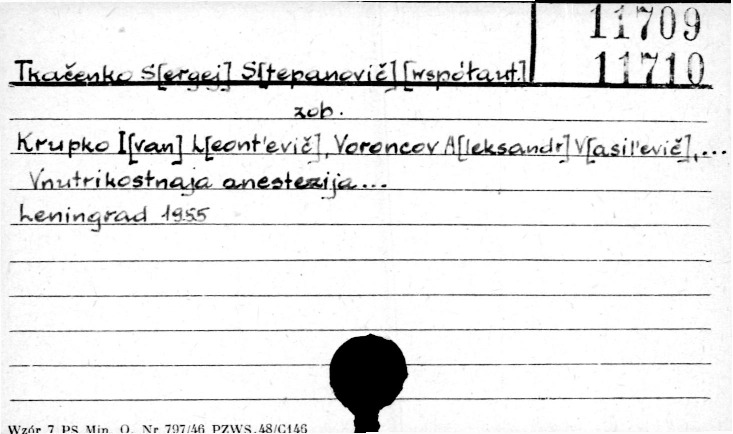 11709
11710
Tkačenko S[ergej] S[tepanovič] [współaut.]
zob.
Krupko I[van] L[eont'evič], Voroncov A[leksandr] V[asil'evič], ...
Vnutrikostnaja anestezija...
Leningrad 1955
Wzór 7 PS Min. O. Nr 797/46 PZWS.48/C146